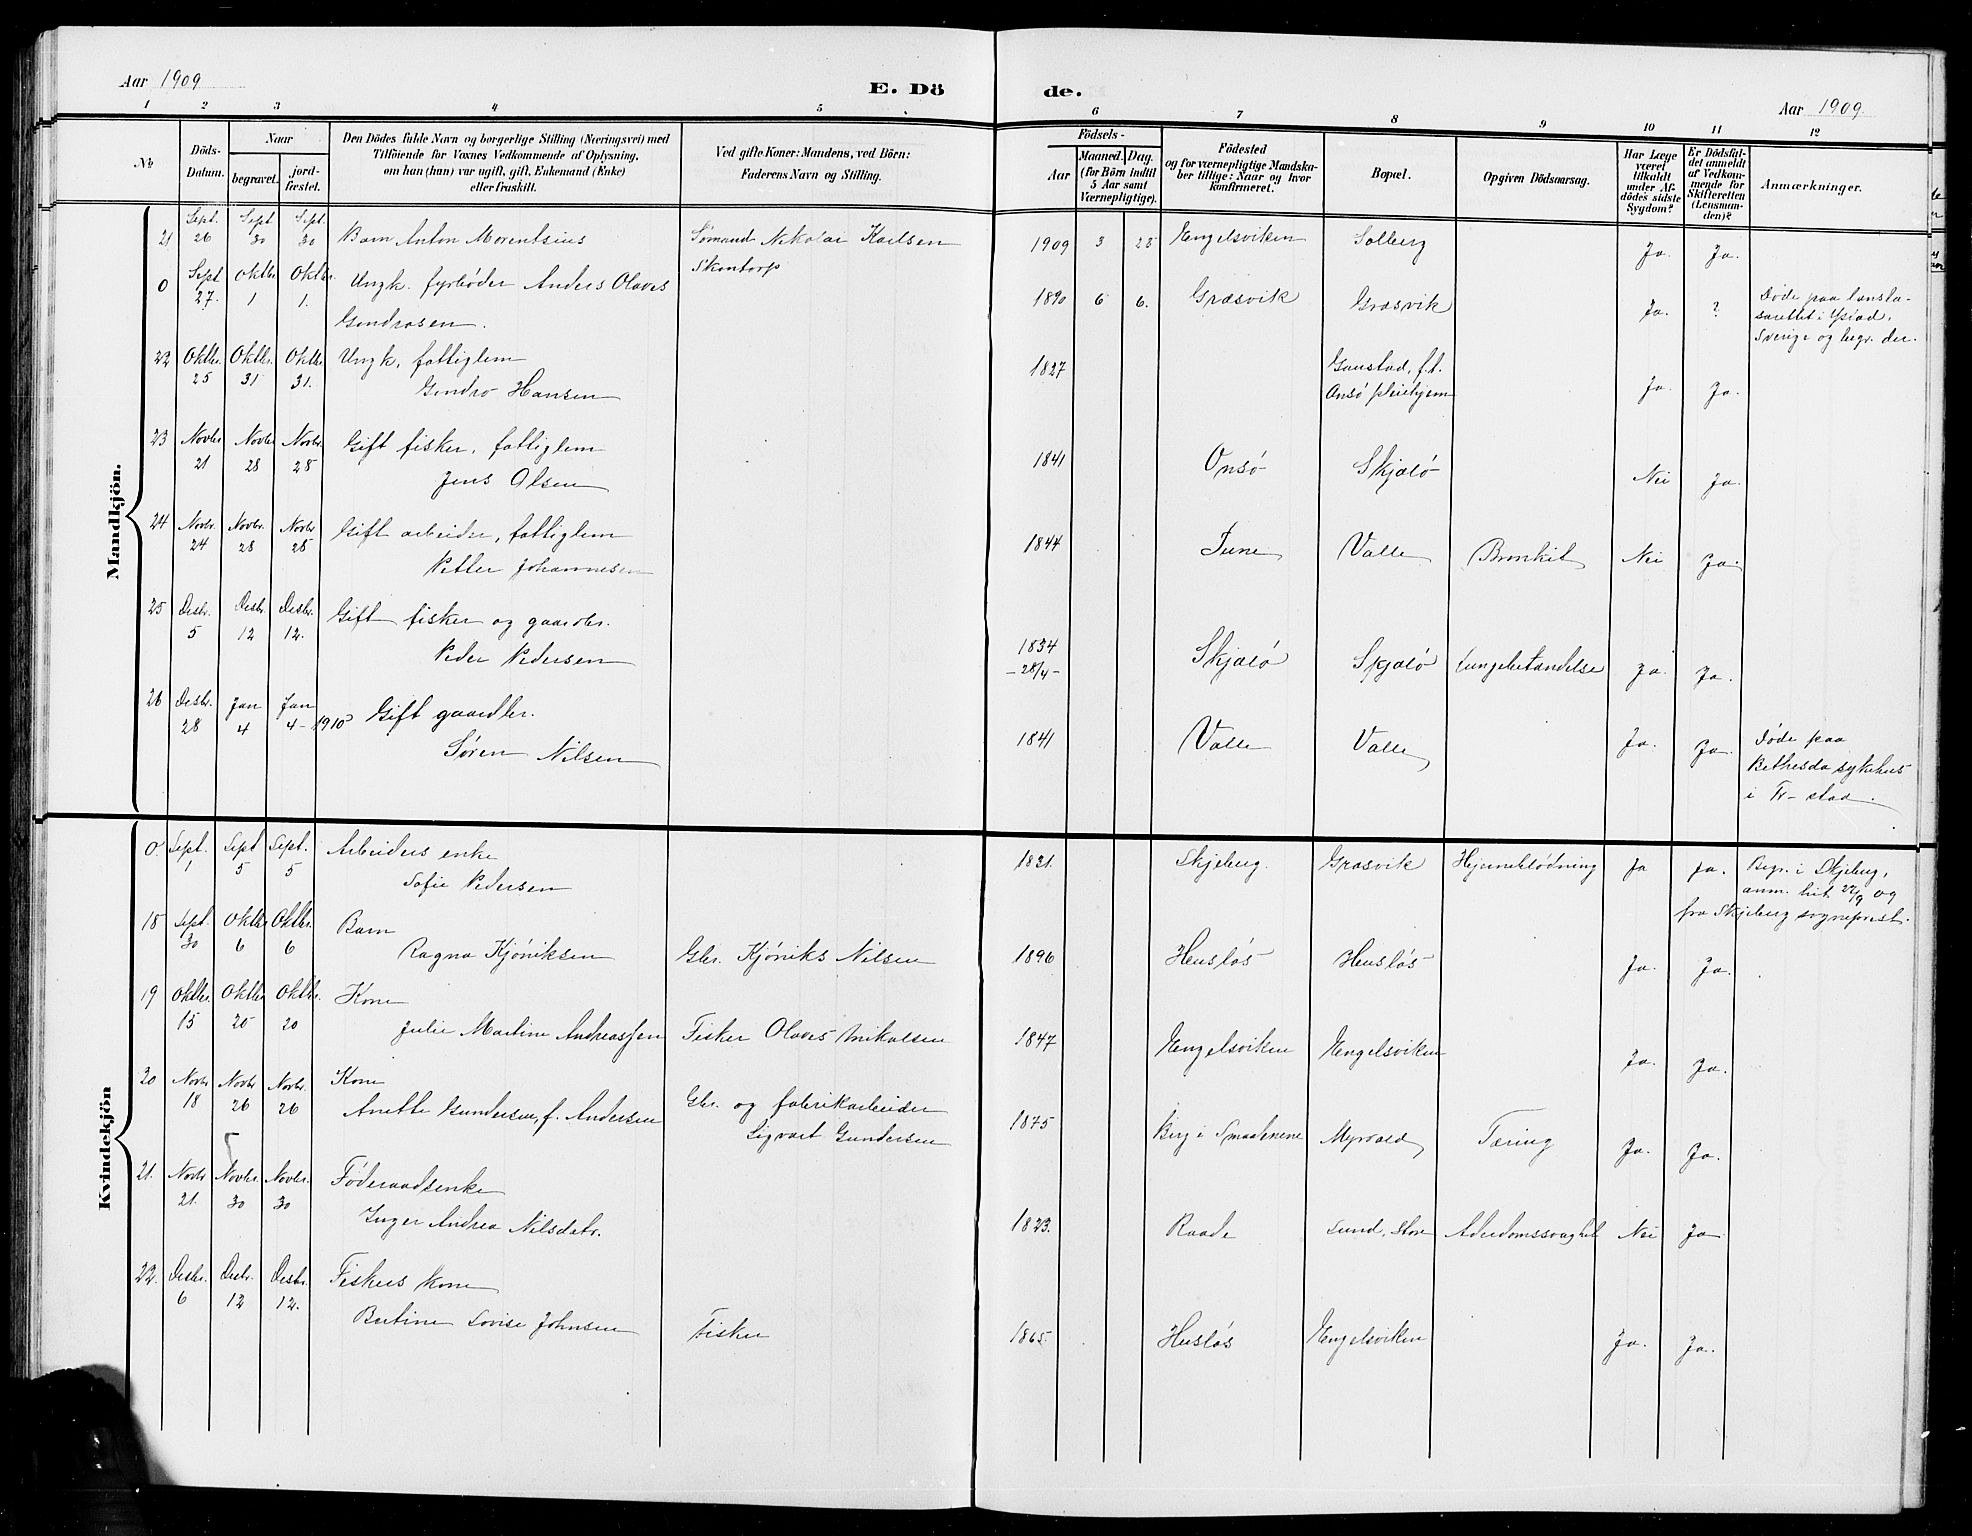 Aar 1909
E. Dö de.
Aar 1909.
1 2 3 4 5 6 7 8 9 10 11 12
No
Döds-Datum.
Naar
begravet.
jordfæstet.
Den Dödes fulde Navn og borgerlige Stilling (Næringsvei) med
Tilföiende for Voxnes Vedkommende af Oplysning,
om han (hun) var ugift, gift, Enkemand (Enke)
eller fraskilt.
Ved gifte Koner: Mandens, ved Börn:
Faderens Navn og Stilling.
Födsels-
Aar
Maaned. Dag.
(for Börn indtil
5 Aar samt
Værnepligtige).
Födested
og for værnepligtige Mandska-
ber tillige: Naar og hvor
konfirmeret.
Bopæl.
Opgiven Dödsaarsag.
Har Læge
været
tilkaldt
under Af-
dödes sidste
Sygdom?
Er Dödsfal-
det anmeldt
af Vedkom-
mende for
Skifteretten
(Lensman-
den)?
Anmærkninger.
Mandkjön.
21 Sept. 26 Sept 30 Sept. 30 Barn Anton Morentsius Sømand Nikolai Karlsen 1909 3 28 Engelsviken Solberg Ja. Ja.
Skantorp
0 Sept 27. Oktbr 1 Oktbr. 1. Ungk. fyrbøder Anders Olaves 1890 6 6. Græsvik Græsvik Ja. ? Døde paa lænsla-
Gundrosen. sarettet i Ystad,
Sverige og begr. der.
22 Oktbr. 25 Oktbr. 31 Oktbr. 31. Ungk, fattiglem 1827 Gaustad, f.t.
Gundro Hansen Onsø pleiehjem Ja. Ja.
23 Novbr 21 Novbr 28 Novbr. 28 Gift fisker, fattiglem 1841 Onsø Skjælø Nei Ja.
Jens Olsen
24 Novbr. 24 Novbr. 28 Novbr. 28 Gift arbeider, fattiglem 1844 Tune Valle Bronkit Nei Ja.
Petter Johannesen
25 Desbr. 5 Desbr. 12 Desbr. 12. Gift fisker og gaardbr. 1834 -28/4- Skjælø Skjælø Lungebetændelse Ja. Ja.
Peder Pedersen
26 Desbr. 28 Jan 4 Jan 4-1910 Gift gaardbr. 1841 Valle Valle Ja. Ja. Døde paa
Søren Nilsen Bethesda sykehus
i Fr-stad.
Kvindekjön
0. Sept. 1 Sept 5 Sept. 5 Arbeiders enke 1821. Skjeberg. Græsvik Hjerneblødning Ja Ja. Begr. i Skjeberg,
Sofie Pedersen anm. hit 27/9 09
fra Skjeberg sogneprest.
18 Sept. 30 Oktbr 6 Oktbr. 6 Barn
Ragna Kjøniksen Gbr. Kjøniks Nilsen 1896 Husløs Husløs Ja. Ja.
19 Oktbr. 15 Oktbr 20 Oktbr. 20 Kone
Julie Martine Andreassen Fisker Olaves Mikalsen 1847 Engelsviken Engelsviken Ja. Ja.
20 Novbr 18 Novbr. 26 Novbr. 26 Kone
Anette Gundersen, f. Andersen Gbr. og fabrikarbeider 1875 Berg i Smaalenene Myrvold Tæring Ja. Ja.
Sigvart Gundersen
21. Novbr 21. Novbr. 30 Novbr. 30 Føderaadsenke
Inger Andrea Nilsdatr. 1823. Raade Lund, Store Alderdomssvaghet Nei Ja
22. Desbr. 6 Desbr. 12 Desbr. 12. Fiskers kone
Bertine Lovise Johnsen Fisker 1865. Husløs Engelsviken Ja. Ja.